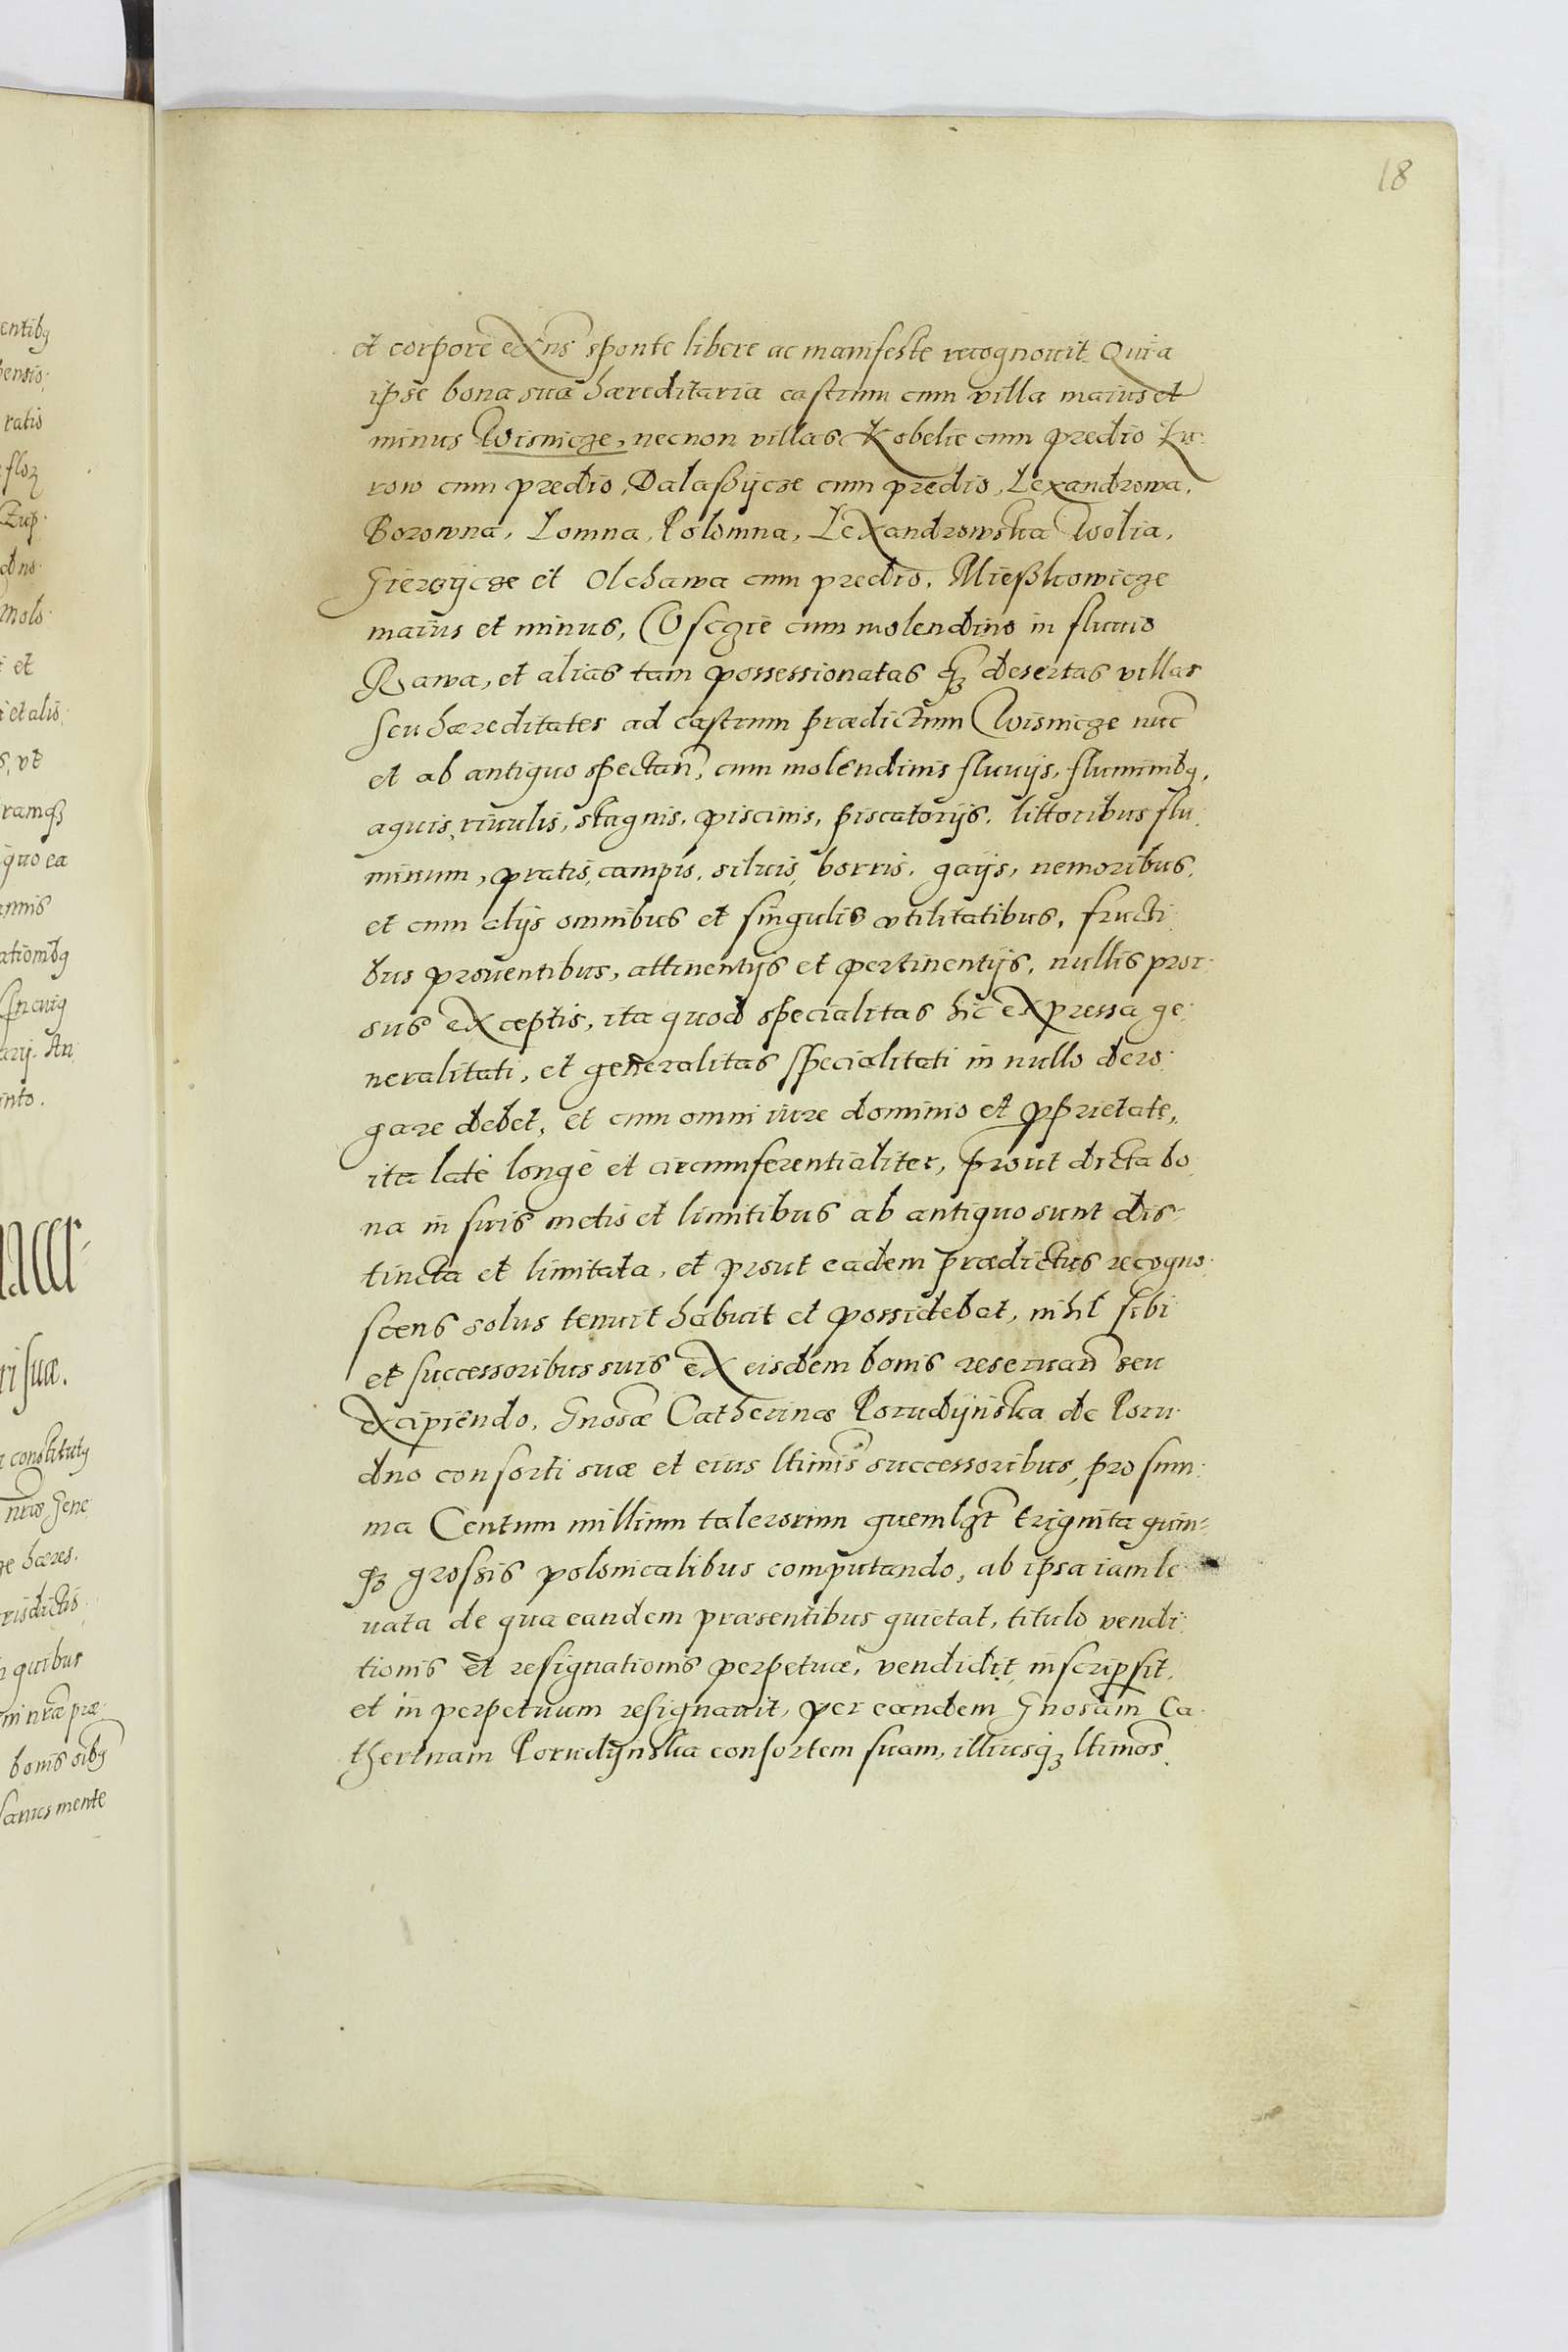 18
et corpore exns sponte libere ac manifeste recognouit. Quia
ipse bona sua hæreditaria castrum cum villa maius et
minus Wisnicze, necnon villas Kobelie cum predio Ku-
row cum predio, Dalaßÿcze cum predio, Lexandrowa,
Borowna, Lomna, Polomna, Lexandrowska Wolia,
Gierczÿcze et Olchawa cum predio, Mießkowicze
maius et minus, Oscgie cum molendino in fluuio
Rawa, et alias tam possessionatas qȝ desertas villas
seu hæreditates ad castrum prædictum Wisnicze nuc
et ab antiquo spectan, cum molendinis fluuijs, fluminibꝗ,
aquis, riuulis, stagnis, piscinis, piscatorijs, littoribus flu-
minum, pratis, campis, siluis, borris, gaijs, nemoribus,
et cum alijs omnibus et singulis vtilitatibus, fructi-
bus prouentibus, attinentijs et pertinentijs, nullis pror-
sus exceptis, ita quod specialitas hic expressa ge-
neralitati, et generalitas specialitati in nullo dero-
gare debet, et cum omni iure dominio et pprietate,
ita late longè et circumferentialiter, prout dicta bo-
na in suis metis et limitibus ab antiquo sunt dis-
tincta et limitata, et prout eadem prædictus recogno-
scens solus tenuit habuit et possidebat, nihil sibi
et successoribus suis ex eisdem bonis reseruan seu
excipiendo, Gnosæ Catherinæ Porudÿnska de Poru-
dno consorti suæ et eius ltimis successoribus, pro sum-
ma Centum millium talerorum quemlqt triginta quin-
qȝ grossis polonicalibus computando, ab ipsa iam le-
uata de qua eandem præsentibus quietat, titulo vendi-
tionis et resignationis perpetuæ, vendidit, inscripsit,
et in perpetuum resignauit, per eandem Gnosam Ca-
therinam Porudÿnska consortem suam, illiusqȝ ltimos